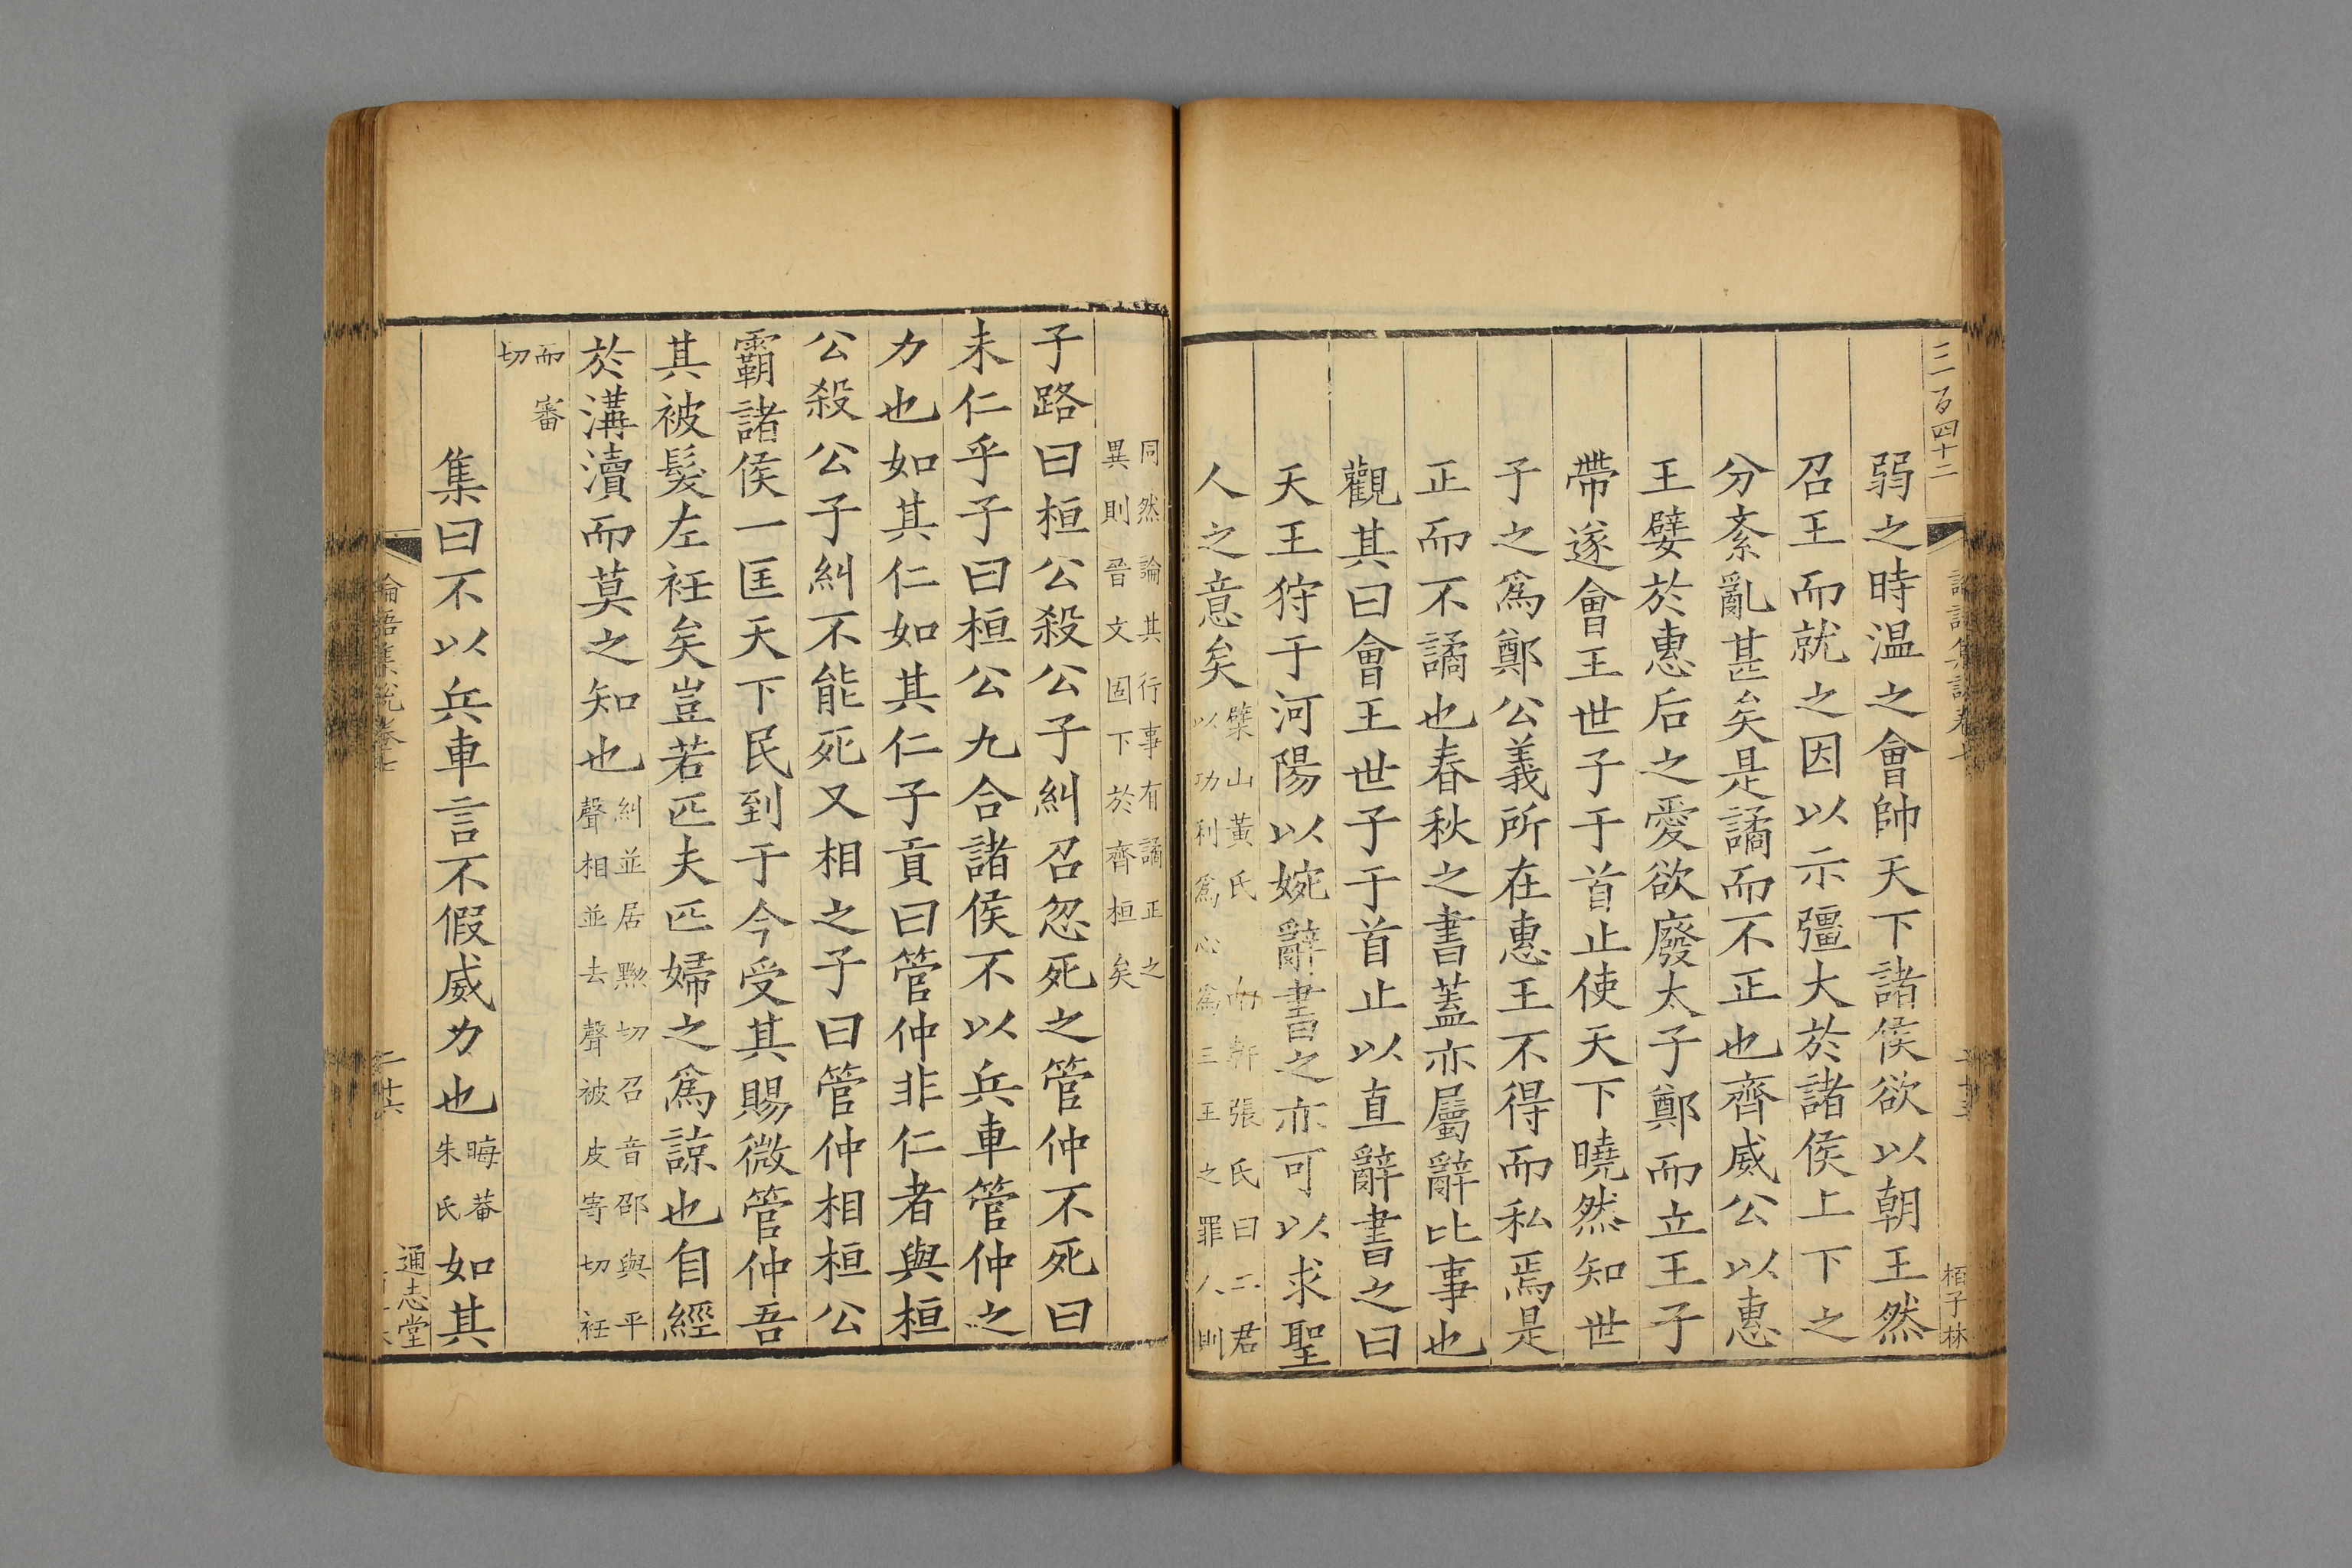 三百四十二
栢子林
弱之時温之會帥天下諸侯欲以朝王然
召王而就之因以示彊大於諸侯上下之
分紊亂甚矣是譎而不正也齊威公以惠
王嬖於惠后之愛欲廢太子鄭而立王子
帶遂會王世子于首止使天下曉然知世
子之爲鄭公義所在惠王不得而私焉是
正而不譎也春秋之書蓋亦屬辭比事也
觀其曰會王世子于首止以直辭書之曰
天王狩于河陽以婉辭書之亦可以求聖
人之意矣檗山黃氏南軒張氏曰二君以功利爲心爲三王之罪人則
同然論其行事有譎正之異則晉文固下於齊桓矣
子路曰桓公殺公子糾召忽死之管仲不死曰
未仁乎子曰桓公九合諸侯不以兵車管仲之
力也如其仁如其仁子貢曰管仲非仁者與桓
公殺公子糾不能死又相之子曰管仲相桓公
霸諸侯一匡天下民到于今受其賜微管仲吾
其被髮左衽矣豈若匹夫匹婦之爲諒也自經
於溝瀆而莫之知也糾並居黝切召音邵與平聲相並去聲被皮寄切衽
而審切
集曰不以兵車言不假威力也晦菴朱氏如其
論語集說卷七
通志堂